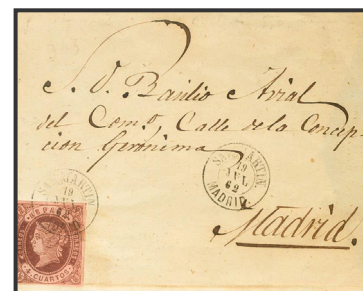 S. D. Basilio Arial
del Com.º Calle de la Concep-
cion Gerónima
Sn MARTIN
19
JUL
62
MADRID
Madrid.
Sn MARTIN
19
CORREOS
4 CUARTOS